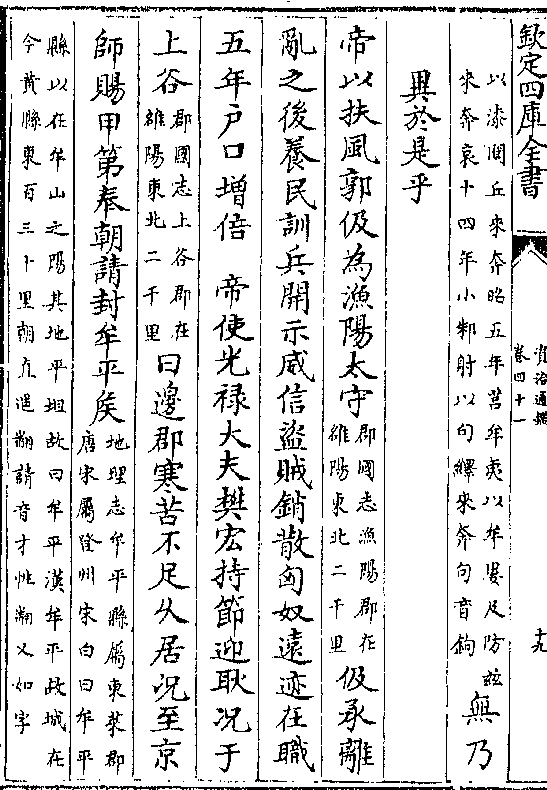 欽定四庫全書
資治通鑑
卷四十一
十九
以漆閭丘來奔昭五年莒牟夷以牟婁及防兹
來奔哀十四年小邾射以句繹來奔句音鉤
無乃
異於是乎
帝以扶風郭伋為漁陽太守
郡國志漁陽郡在
雒陽東北二千里
伋承離
亂之後養民訓兵開示威信盜賊銷散匈奴遠迹在職
五年户口增倍　帝使光禄大夫樊宏持節迎耿况于
上谷
郡國志上谷郡在
雒陽東北二千里
曰邊郡寒苦不足久居况至京
師賜甲第奉朝請封牟平侯
地理志牟平縣屬東萊郡
唐宋屬登州宋白曰牟平
縣以在牟山之陽其地平坦故曰牟平漢牟平故城在
今黄縣東百三十里朝直遥翻請音才性翻又如字